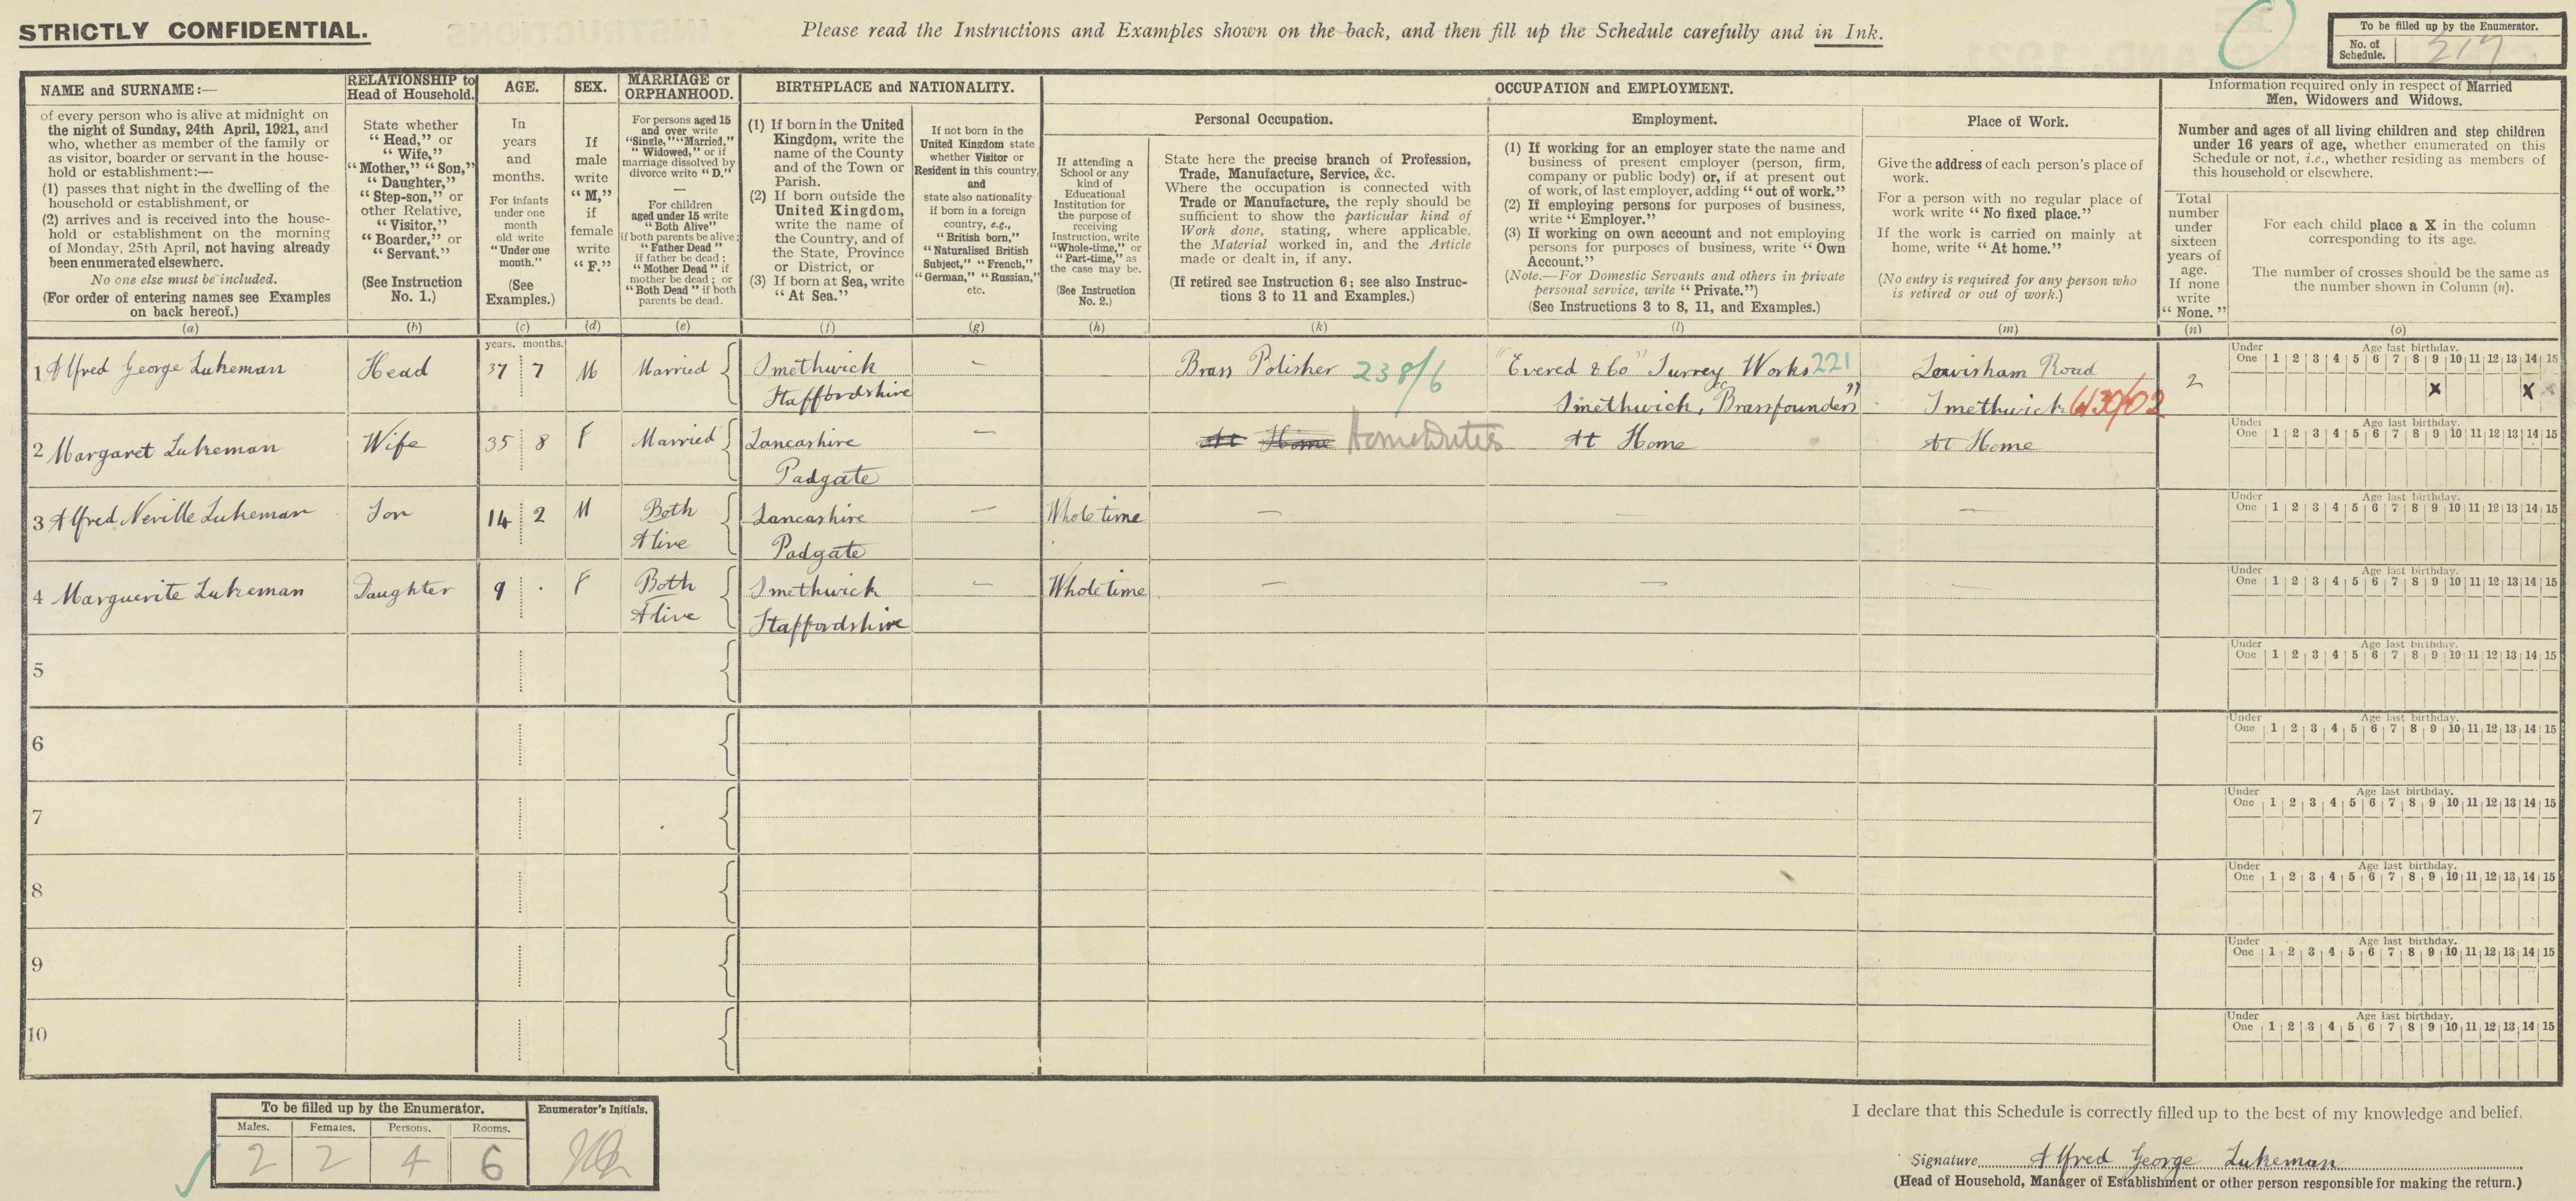 STRICTLY CONFIDENTIAL.
Please read the Instructions and Examples shown on the back, and then fill up the Schedule carefully and in Ink.
To be filled up by the Enumerator.
No. of Schedule. 217
NAME and SURNAME:—
of every person who is alive at midnight on
the night of Sunday, 24th April, 1921, and
who, whether as member of the family or
as visitor, boarder or servant in the house-
hold or establishment:—
(1) passes that night in the dwelling of the
household or establishment, or
(2) arrives and is received into the house-
hold or establishment on the morning
of Monday, 25th April, not having already
been enumerated elsewhere.
No one else must be included.
(For order of entering names see Examples
on back hereof.)
(a)
RELATIONSHIP to
Head of Household.
State whether
“Head,” or
“Wife,”
“Mother,” “Son,”
“Daughter,”
“Step-son,” or
other Relative,
“Visitor,”
“Boarder,” or
“Servant.”
(See Instruction
No. 1.)
(b)
AGE.
In
years
and
months.
For infants
under one
month
old write
“Under one
month.”
(See
Examples.)
(c)
SEX.
If
male
write
“M,”
if
female
write
“F.”
(d)
MARRIAGE or
ORPHANHOOD.
For persons aged 15
and over write
“Single,” “Married,”
“Widowed,” or if
marriage dissolved by
divorce write “D.”
—
For children
aged under 15 write
“Both Alive”
if both parents be alive;
“Father Dead”
if father be dead;
“Mother Dead” if
mother be dead; or
“Both Dead” if both
parents be dead.
(e)
BIRTHPLACE and NATIONALITY.
(1) If born in the United
Kingdom, write the
name of the County
and of the Town or
Parish.
(2) If born outside the
United Kingdom,
write the name of
the Country, and of
the State, Province
or District, or
(3) If born at Sea, write
“At Sea.”
(f)
If not born in the
United Kingdom state
whether Visitor or
Resident in this country,
and
state also nationality
if born in a foreign
country, e.g.,
“British born,”
“Naturalised British
Subject,” “French,”
“German,” “Russian,”
etc.
(g)
OCCUPATION and EMPLOYMENT.
If attending a
School or any
kind of
Educational
Institution for
the purpose of
receiving
Instruction, write
“Whole-time,” or
“Part-time,” as
the case may be.
(See Instruction
No. 2.)
(h)
Personal Occupation.
State here the precise branch of Profession,
Trade, Manufacture, Service, &c.
Where the occupation is connected with
Trade or Manufacture, the reply should be
sufficient to show the particular kind of
Work done, stating, where applicable,
the Material worked in, and the Article
made or dealt in, if any.
(If retired see Instruction 6; see also Instruc-
tions 3 to 11 and Examples.)
(k)
Employment.
(1) If working for an employer state the name and
business of present employer (person, firm,
company or public body) or, if at present out
of work, of last employer, adding “out of work.”
(2) If employing persons for purposes of business,
write “Employer.”
(3) If working on own account and not employing
persons for purposes of business, write “Own
Account.”
(Note.—For Domestic Servants and others in private
personal service, write “Private.”)
(See Instructions 3 to 8, 11, and Examples.)
(l)
Place of Work.
Give the address of each person's place of
work.
For a person with no regular place of
work write “No fixed place.”
If the work is carried on mainly at
home, write “At home.”
(No entry is required for any person who
is retired or out of work.)
(m)
Information required only in respect of Married
Men, Widowers and Widows.
Number and ages of all living children and step children
under 16 years of age, whether enumerated on this
Schedule or not, i.e., whether residing as members of
this household or elsewhere.
Total
number
under
sixteen
years of
age.
If none
write
“None.”
(n)
For each child place a X in the column
corresponding to its age.
The number of crosses should be the same as
the number shown in Column (n).
(o)
years. months.
1 Alfred George Lukeman Head 37 7 M Married Smethwick — Brass Polisher 238/6 "Evered & Co" Surrey Works 221 Lewisham Road 2
Staffordshire Smethwick, Brassfounders" Smethwick 6/30/02
Under One Age last birthday. 1 2 3 4 5 6 7 8 9 10 11 12 13 14 15
x x x
2 Margaret Lukeman Wife 35 8 F Married Lancashire — At Home Home Duties At Home At Home
Padgate
Under One Age last birthday. 1 2 3 4 5 6 7 8 9 10 11 12 13 14 15
3 Alfred Neville Lukeman Son 14 2 M Both Lancashire — Whole time — — —
Alive Padgate
Under One Age last birthday. 1 2 3 4 5 6 7 8 9 10 11 12 13 14 15
4 Marguerite Lukeman Daughter 9 . F Both Smethwick — Whole time — — —
Alive Staffordshire
Under One Age last birthday. 1 2 3 4 5 6 7 8 9 10 11 12 13 14 15
5
Under One Age last birthday. 1 2 3 4 5 6 7 8 9 10 11 12 13 14 15
6
Under One Age last birthday. 1 2 3 4 5 6 7 8 9 10 11 12 13 14 15
7
Under One Age last birthday. 1 2 3 4 5 6 7 8 9 10 11 12 13 14 15
8
Under One Age last birthday. 1 2 3 4 5 6 7 8 9 10 11 12 13 14 15
9
Under One Age last birthday. 1 2 3 4 5 6 7 8 9 10 11 12 13 14 15
10
Under One Age last birthday. 1 2 3 4 5 6 7 8 9 10 11 12 13 14 15
To be filled up by the Enumerator.
Enumerator's Initials.
Males. Females. Persons. Rooms.
2 2 4 6
I declare that this Schedule is correctly filled up to the best of my knowledge and belief.
Signature Alfred George Lukeman
(Head of Household, Manager of Establishment or other person responsible for making the return.)